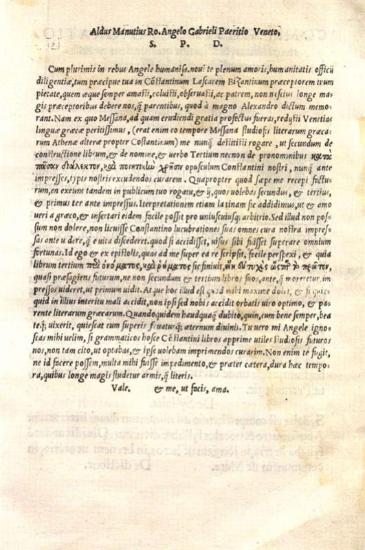 Aldus Manutius Ro. Angelo Gabrieli Patritio Veneto,
S. P. D.
Cum plurimis in rebus Angele humaniss. noui te plenum amoris, humanitatis officii
diligentiæ, tum præcipue tua in Cõstantinum Lascarem Bizantinum præceptorem tuum
pietate, quem æque semper amasti, coluisti, obseruasti, ac patrem, non nescius longe ma
gis præceptoribus debere nos, q̃ parentibus, quod à magno Alexandro dictum memo
rant. Nam ex quo Messana, ad quam erudiendi gratia profectus fueras, rediisti Venetias
linguæ græcæ peritissimus, (erat enim eo tempore Messana studiosis literarum græca-
rum Athenæ alteræ propter Cõstantinum) me nunq̃ destitisti rogare, ut secundum de
constructione librum, & de nomine, & uerbo Tertium necnon de pronominibus κατὰ
πᾶσαν διάλεκτον, opusculum Constantini nostri, nunq̃ ante
impresses, typis nostris excudendos curarem. Quapropter quod sæpe me recepi factu-
rum, en exeunt tandem in publicum tuo rogatu, & ij, quos uolebas secundus, & tertius,
& primus ter ante impressus. Interpretationem etiam latinam sic addidimus, ut & amo
ueri à græco, & insertari eidem facile possit pro uniuscuiusq; arbitrio. Sed illud non pos-
sum non dolere, non licuisse Constantino lucubrationes suas omnes cura nostra impres-
sas ante uidere, q̃ è uita discederet. quod si accidisset, uisus sibi fuisset superare omnium
fortunas. Id ego & ex epistolis, quas ad me super ea re scripsit, facile perspexi, & quia
librum tertium
quasi præsagiens futurum, ne non secundum, & tertium libros suos, ante, q̃ moreretur im-
pressos uideret, ut primum uidit. At que hoc illud est quod mihi maxime dolet, & siquid
quid in illius interitu mali accidit, non ipsi sed nobis accidit orbatis uiro optimo, & pa
rente literarum græcarum. Quandoquidem haudquaq̃ dubito, quin, cum bene semper, bea
teq; uixerit, quiescat cum superis fruaturq; æternum diuinis. Tu uero mi Angele igno-
scas mihi uelim, si grammaticos hosce Cõstantini libros apprime utiles studiosis futuros
nos, non tam cito, ut optabas, & ipse uolebam imprimendos curarim. Non enim te fugit,
ne id facere possem, multa mihi fuisse impedimento, & præter cætera, dura hæc tempo-
ra, quibus longe magis studetur armis, q̃ literis.
Vale. & me, ut facis, ama.